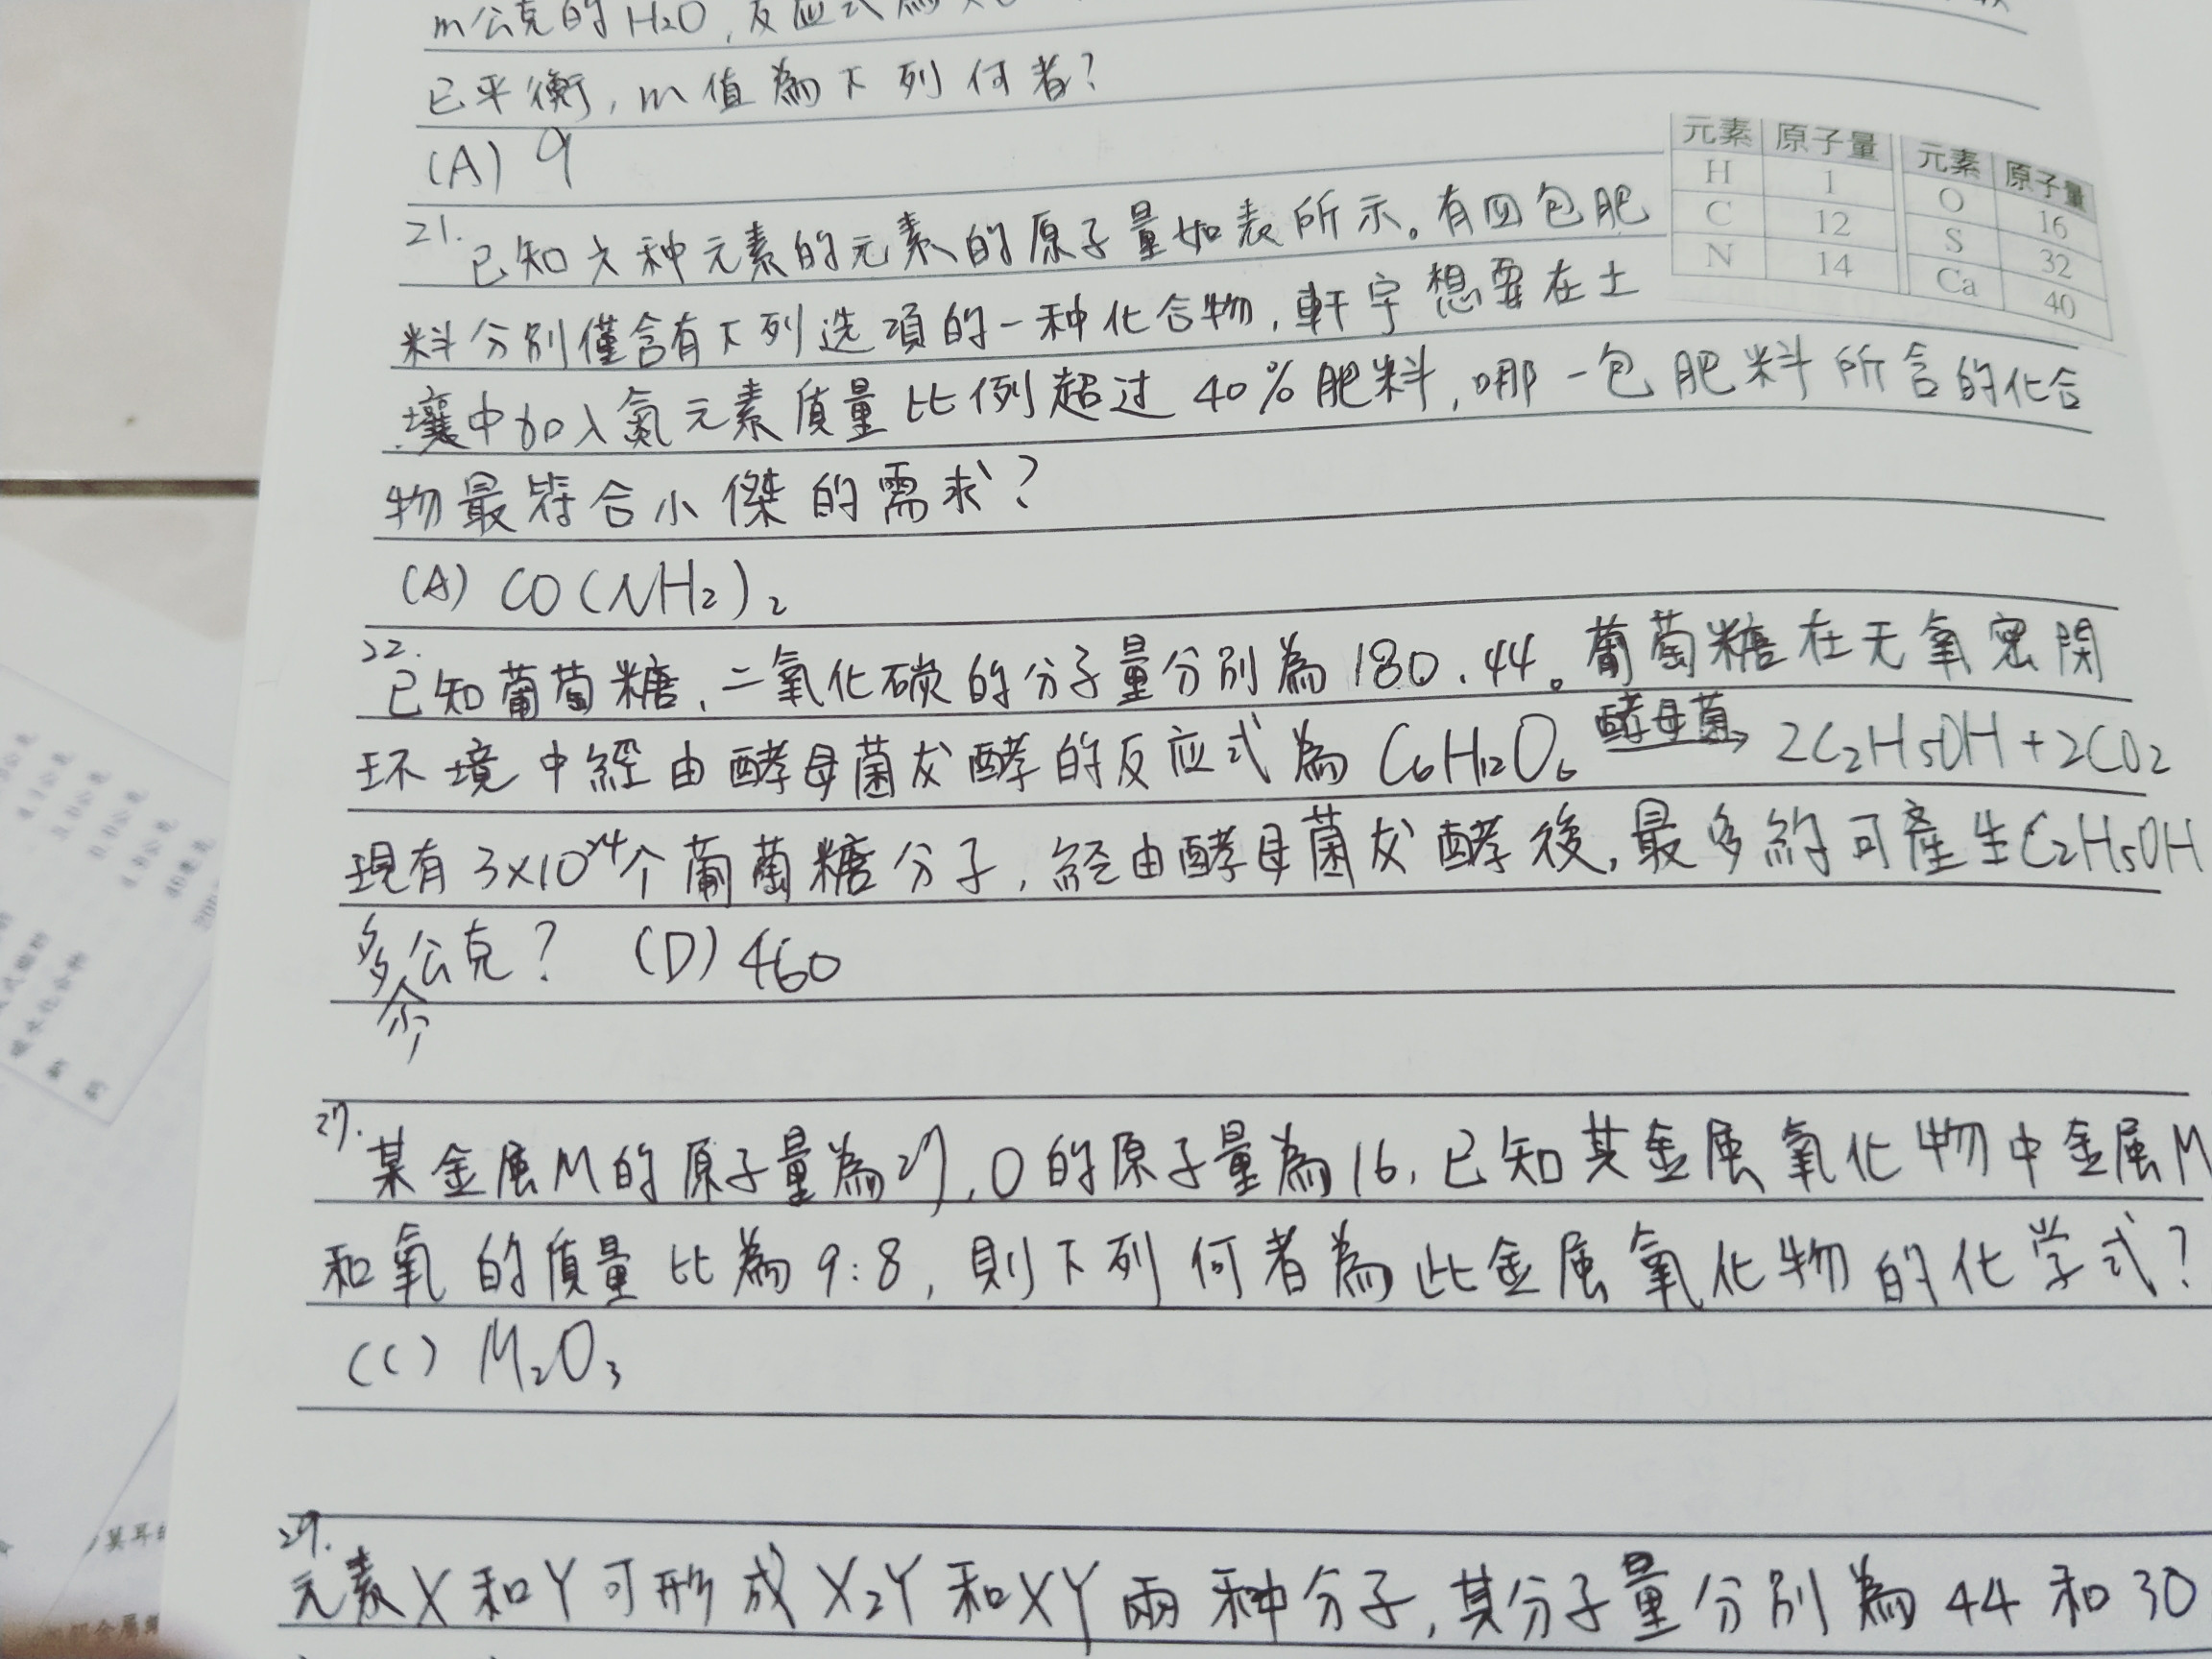 m公克的H₂O,反应式為
已平衡,m值為下列何者?
(A) 9
元素 原子量 元素 原子量
H 1 O 16
C 12 S 32
N 14 Ca 40
21.已知六种元素的元素的原子量如表所示。有四包肥
料分別僅含有下列选項的一种化合物,軒宇想要在土
壤中加入氮元素質量比例超过40%肥料,哪一包肥料所含的化合
物最符合小傑的需求?
(A) CO(NH₂)₂
22.已知葡萄糖、二氧化碳的分子量分別為180、44。葡萄糖在无氧密閉
环境中經由酵母菌发酵的反应式為C₆H₁₂O₆ 酵母菌→ 2C₂H₅OH+2CO₂
現有3×10²⁴个葡萄糖分子,経由酵母菌发酵後,最多約可產生C₂H₅OH
多少公克? (D) 460
27.某金属M的原子量為27,O的原子量為16,已知其金属氧化物中金属M
和氧的質量比為9:8,則下列何者為此金属氧化物的化学式?
(C) M₂O₃
29.元素X和Y可形成X₂Y和XY兩种分子,其分子量分別為44和30